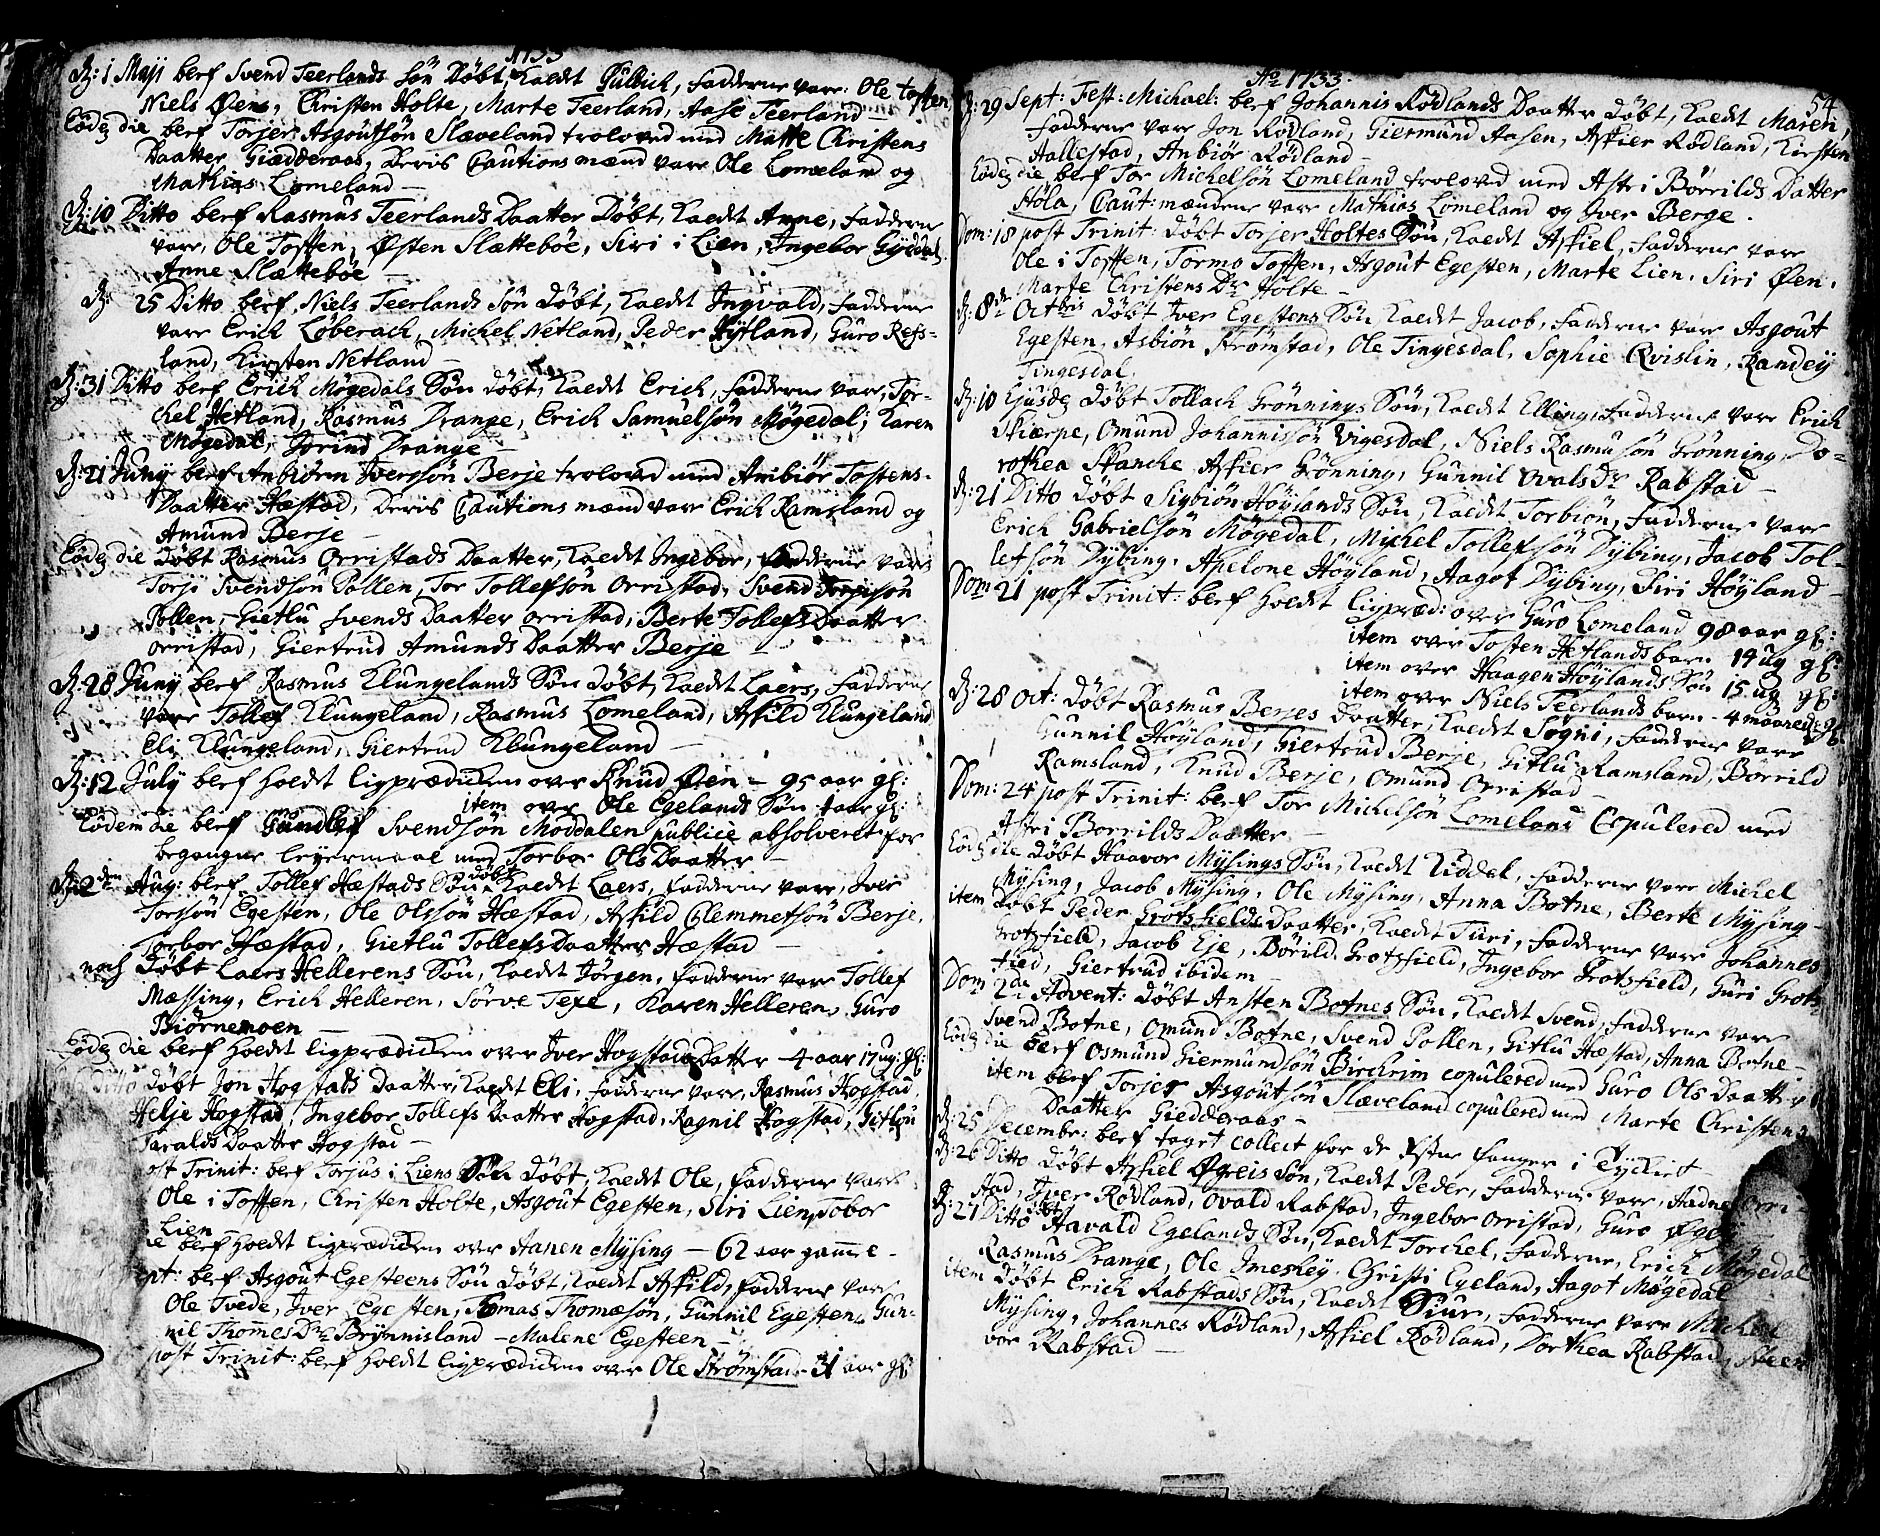 1733
D: 1 Maji berf Svend Teerlands Sön Döbt, Kaldt Gulbich, Fadderne vare: Ole Toften,
Niels Øen, Christen Holte, Marte Teerland, Aase Teerland –
Eodem die berf Torjer Asgoutsön Slæveland trolovd med Matte Christens
Daatter Giædderaas, Deris Cautions mænd vare Ole Lomeland og
Mathias Lomeland –
D: 10 Ditto berf Rasmus Teerlands Daatter Döbt, Kaldt Anne, Fadderne
vare, Ole Toften, Østen Slættebøe, Siri i Lien, Ingebor Gydal,
Anne Slættebøe –
D: 25 Ditto berf Niels Teerlands Sön Döbt, Kaldt Ingvald, Fadderne
vare Erich Løberach, Michel Netland, Peder Hytland, Guro Refs-
land, Kirsten Netland –
D: 31 Ditto berf Erich Mögedals Sön Döbt, Kaldt Erich, Fadderne vare, Tor-
chel Hetland, Rasmus Drange, Erich Samuelsön Møgedal, Karen
Møgedal, Jorind Drange –
D: 21 Juny berf Anbiörn Iversön Berje trolovd med Anbiör Tostens-
Daatter Hæstad, Deris Cautions mænd vare Erich Ramsland og
Amund Berje –
Eodem die Döbt Rasmus Orristads Daatter, Kaldt Ingebor, Fadderne vare
Torji Svendsön Pollen, Tor Tollefsön Orristad, Svend Torjisön
Pollen, Gietlu Svends Daatter Orristad, Berte Tollefs Daatter
Orristad, Giertrud Amunds Daatter Berje –
D: 28 Juny berf Rasmus Klungelands Sön Döbt, Kaldt Laers, Fadderne
vare Tollef Klungeland, Rasmus Lomeland, Askild Klungeland,
Eli Klungeland, Giertrud Klungeland –
D: 12 July berf holdt ligprædicken over Knud Øen – 95 aar gl:
item over Ole Egelands Sön 1 aar gl:
Eodem die berf Gundlef Svendsön Moddalen publice absolveret for
begangne leyermaal med Torbor Ols Daatter –
D: 2den Aug: berf Tollef Hæstads Sön döbt Kaldt Laers, Fadderne vare, Iver
Torssön Egesten, Ole Olssön Hæstad, Askild Clemmetsön Berje,
Torbor Hæstad, Gietlu Tollefs Daatter Hæstad –
noch Döbt Laers Hellerens Sön, Kaldt Jörgen, Fadderne vare Tollef
Mæssing, Erich Helleren, Sörve Texe, Karen Helleren, Guro
Biörnemoen –
Eodem die berf holdt ligprædicken over Iver Hogstads Datter – 4 aar 17 ug: gl:
Ditto döbt Jon Hogstads Daatter, Kaldt Eli, Fadderne vare, Rasmus Hogstad,
Helje Hogstad, Ingebor Tollefs Daatter Hogstad, Ragnil Hogstad, Gitlu
Taralds Daatter Hogstad –
ost Trinit: berf Torjus i Liens Sön Döbt, Kaldt Ole, Fadderne vare
Ole i Toften, Christen Holte, Asgout Egesten, Siri Lien, Tobor
Lien
ie berf holdt ligprædicken over Janen Mysing – 62 aar gamel –
ept: berf Asgout Egesteens Sön Döbt, Kaldt Askild, Fadderne vare
Ole Tvede, Iver Egesten, Tomas Thomæsön, Gunnil Egesten, Gun-
nil Thomes Dr Brynnisland – Malene Egesteen –
post Trinit: berf holdt ligprædicken over Ole Strømstad – 31 aar gl:
Ao 1733.
54
D: 29 Sept: Fest: Michael: berf Johannis Rødlands Daatter döbt, Kaldt Maren,
Fadderne vare Jon Rødland, Giermund Aasen, Askier Rødland, Kirsten
Aallestad, Anbiör Rødland –
Eodem die berf Tor Michelsön Lomeland trolovd med Astri Börrilds Datter
Höla, Caut: mændene vare Mathias Lomeland og Iver Berge.
Dom: 18 post Trinit: döbt Torjer Holtes Sön, Kaldt Askiel, Fadderne vare
Ole i Toften, Tormo Toften, Asgout Egesten, Marte Lien, Siri Øen,
Marte Christens Dr Holte –
D: 8de Octbris döbt Iver Egestens Sön Kaldt Jacob, Fadderne vare Asgout
Egesten, Asbiön Strømstad, Ole Tingesdal, Sophie Qvislin, Randey
Tingesdal.
D: 10 Ejusdem döbt Tollach Grønnings Sön, Kaldt Elling, Fadderne vare Erich
Skierpe, Omund Johannissön Vigesdal, Niels Rasmussön Grönning, Do-
rothea Stanche Askier Grönning, Gunnil Ovals Dr Rabstad –
D: 21 Ditto döbt Sigbiön Höylands Sön, Kaldt Torbiön, Fadderne vare
Erich Gabrielsön Møgedal, Michel Tollefsön Dybing, Jacob Tol-
lefsön Dybing, Apelone Höyland, Aagot Dybing, Siri Höyland –
Dom: 21 post Trinit: berf holdt ligpræd: over Guro Lomeland 98 aar gl:
item over Tosten Hetlands barn 14 ug gl:
item over Haagen Höylands Sön 15 ug gl:
item over Niels Teerlands barn – 4 maaned: gl
D: 28 Oct: döbt Rasmus Berjes Daatter, Kaldt Sogni, Fadderne vare
Gunnil Höyland, Giertrud Berje, Gitlu Ramsland, Börrild
Ramsland, Knud Berje, Omund Orristad –
Dom: 24 post Trinit: berf Tor Michelsön Lomeland Copulered med
Astri Borrilds Daatter –
Eodem die döbt Haavor Mysings Sön, Kaldt Kiddel, Fadderne vare Michel
Mysing, Jacob Mysing, Ole Mysing, Anna Botne, Berte Mysing –
item döbt Peder Grotsfields Daatter, Kaldt Turi, Fadderne vare Johannes
Grotsfield, Jacob Eje, Börild Grotsfield, Ingebor Grotsfield, Guri Grots-
field, Giertrud ibidem –
Dom 2da Advent: döbt Ansten Botnes Sön, Kaldt Svend, Fadderne vare
Svend Botne, Omund Botne, Svend Pollen, Gitlu Hæstad, Anna Botne –
Eodem die berf Osmund Giermundsön Birchrim copulered med Guro Ols Daatter
item berf Torjer Asgoutsön Slæveland copulered med Marte Christens
Daatter Giedderaas –
D: 25 Decembr: berf taget collect for de Fatne fanger i Tyrkiet –
D: 26 Ditto döbt Askiel Øgreis Sön, Kaldt Peder, Fadderne vare, Aadne Orri-
stad, Iver Rødland, Ovald Rabstad, Ingebor Orristad, Guro Øgr
D: 27 Ditto döbt Havald Egelands Sön, Kaldt Torchel, Fadderne, Erich Møgedal
Rasmus Drange, Ole Imeshey, Christi Egeland, Aagot Møgedal
item döbt Erich Rabstads Sön, Kaldt Siur, Fadderne vare Michel
Mysing, Johannes Rødland, Askiel Rødland, Dorthea Rabstad, Steen
vor Rabstad –